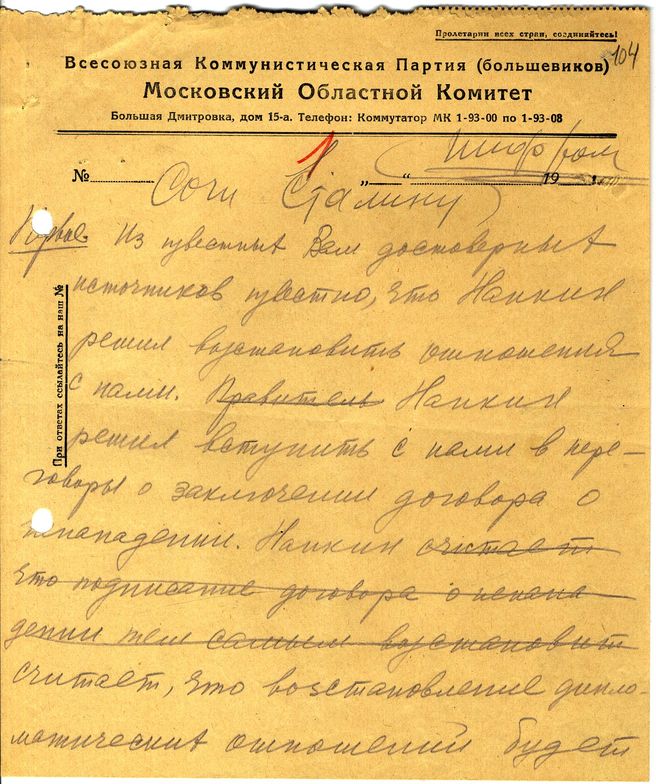 Пролетарии всех стран, соединяйтесь!
104
Всесоюзная Коммунистическая Партия (большевиков)
Московский Областной Комитет
Большая Дмитровка, дом 15-а. Телефон: Коммутатор МК 1-93-00 по 1-93-08
шифром
№ „ “ 19
Сочи Сталину
Первое. Из известных Вам достоверных
источников известно, что Нанкин
решил возстановить отношения
с нами. Правитель Нанкин
решил вступить с нами в пере-
говоры о заключении договора о
ненападении. Нанкин считает
что подписание договора о ненапа
дении тем самым возстановит
считает, что возстановление дипло-
матических отношений будет
При ответах ссылайтесь на наш №